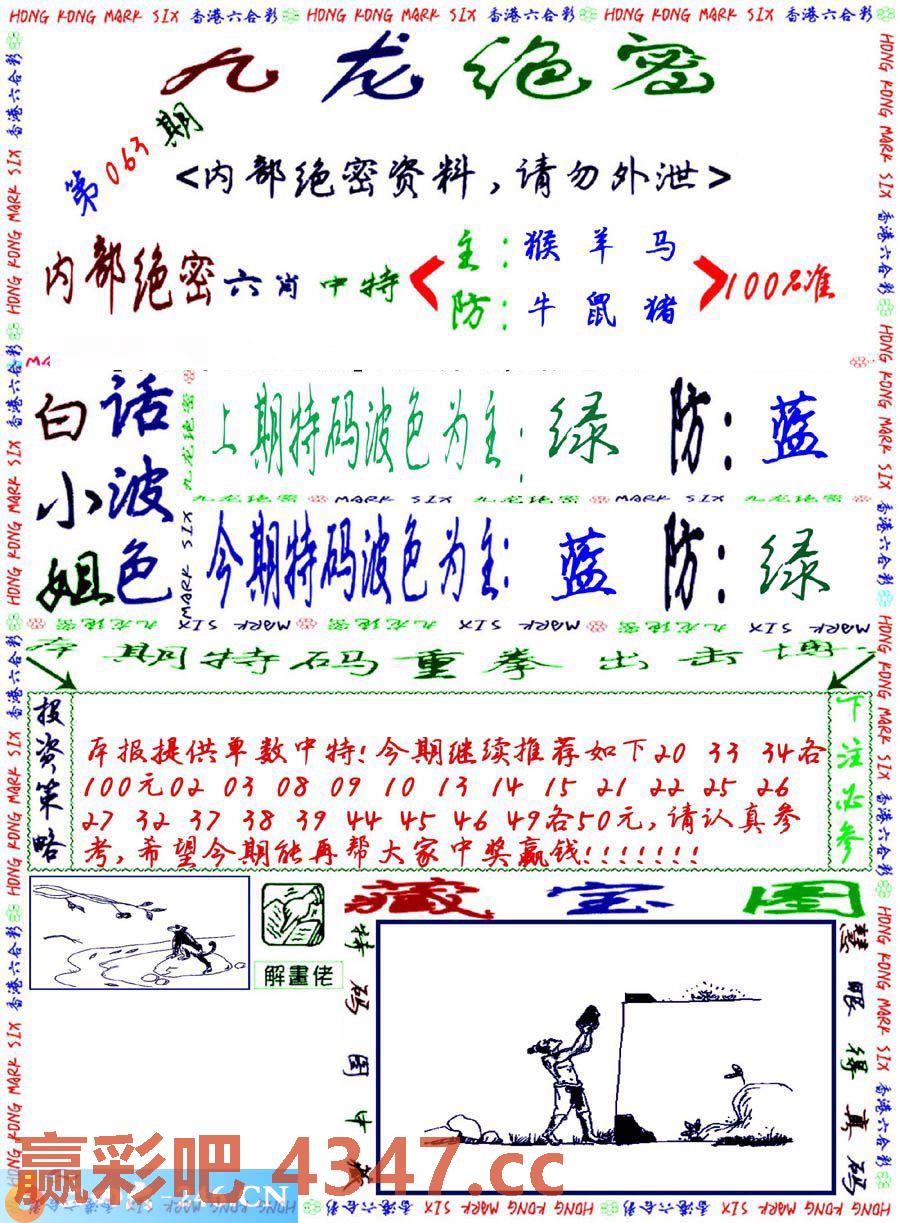 HONG KONG MARK SIX 香港六合彩 HONG KONG MARK SIX 香港六合彩 HONG KONG MARK SIX 香港六合彩
九龙绝密
第063期
<内部绝密资料，请勿外泄>
内部绝密六肖中特
主：猴羊马
防：牛鼠猪
100%准
白小姐
话波色
上期特码波色为主：绿 防：蓝
九龙绝密 MARK SIX 九龙绝密 MARK SIX 九龙绝密
今期特码波色为主：蓝 防：绿
九龙绝密 MARK SIX 九龙绝密 MARK SIX 九龙绝密 MARK SIX
期特码重拳出击
投资策略
本报提供单数中特！今期继续推荐如下20 33 34各
100元02 03 08 09 10 13 14 15 21 22 25 26
27 32 37 38 39 44 45 46 49各50元，请认真参
考，希望今期能再帮大家中奖赢钱！！！！！！！
下注必参
解畫佬
藏宝图
特码图中
慧眼得真码
赢彩吧 4347.cc